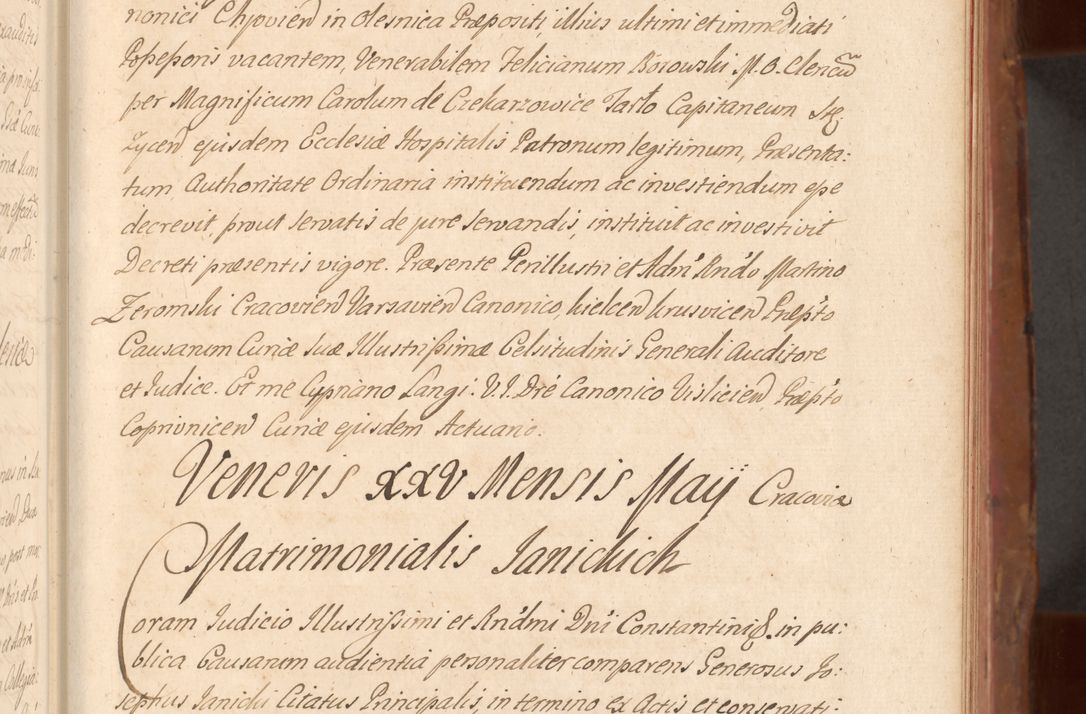 nonici Chjovien in Olesnica Præpositi, illius ultimi et immediati
Possessoris vacantem, Venerabilem Felicianum Borowski M. O. Clericum
per Magnificum Carolum de Czekarzowice Tarło Capitaneum Ste
Zycen ejusdem Ecclesiæ Hospitalis Patronum legitimum, Præsenta:
tum, Authoritate Ordinaria instituendum ac investiendum esse
decrevit, prout servatis de jure servandis, instituit ac investivit
Decreti præsentis vigore. Præsente Perillustri et Adm Rndo Martino
Zeromski Cracovien Varsavien Canonico, kielcen kruswicen Præpto
Causarum Curiæ suæ Illustrissimæ Celsitudinis Generali Auditore
et Judice. Et me Cypriano Langi: U. J. Dre Canonico Vislicien, Præpto
Coprivnicen Curiæ ejusdem Actuario.
Veneris XXV Mensis Maij Cracoviæ
Matrimonialis Janickich
Coram Judicio Illustrissimi et Rndmi Dni Constantini &. in pu:
blica Causarum audientia personaliter comparens Generosus Jo:
sephus Janicki Citatus Principalis, in termino ex Actis et conservati: